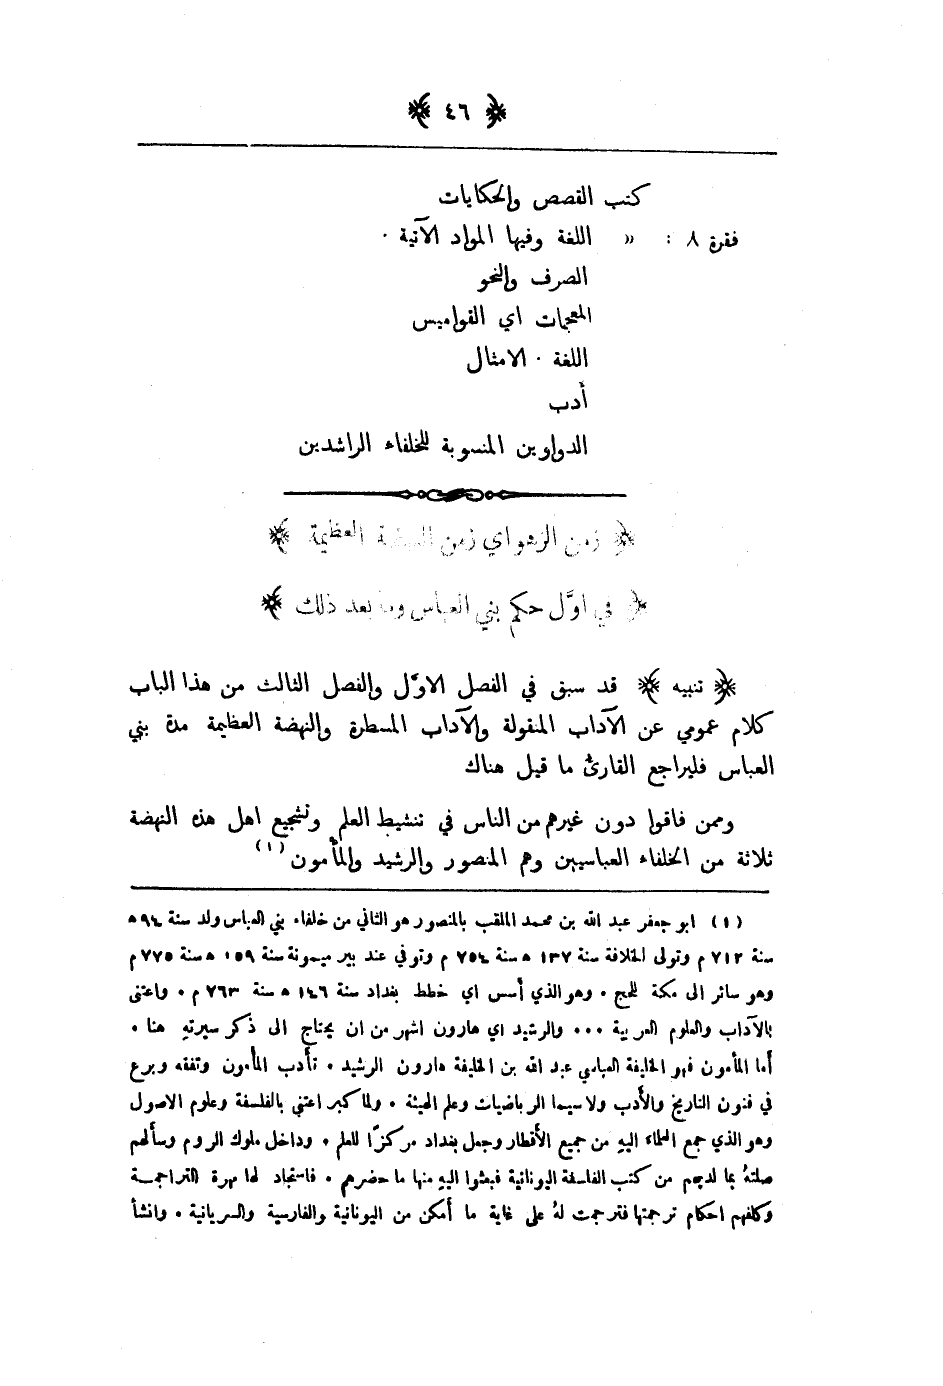 ﴿ ٤٦ ﴾
كتب القصص والحكايات
فقرة ٨ : » اللغة وفيها المواد الآتية ٠
الصرف والنحو
المعجمات اي القواميس
اللغة ٠ الامثال
أدب
الدواوين المنسوبة للخلفاء الراشدين
﴿ زمن الزهو اي زمن النهضة العظيمة ﴾
﴿ في اوَّل حكم بني العباس وما بعد ذلك ﴾
﴿ تنبيه ﴾ قد سبق في الفصل الاوَّل والفصل الثالث من هذا الباب
كلام عمومي عن الآداب المنقولة والآداب المسطرة والنهضة العظيمة مدة بني
العباس فليراجع القارئ ما قيل هناك
وممن فاقوا دون غيرهم من الناس في تنشيط العلم وتشجيع اهل هذه النهضة
ثلاثة من الخلفاء العباسيين وهم المنصور والرشيد والمأمون (١)
(١) ابو جعفر عبد الله بن محمد الملقب بالمنصور هو الثاني من خلفاء بني العباس ولد سنة ٩٤ ه
سنة ٧١٢ م وتولى الخلافة سنة ١٣٧ ه سنة ٧٥٤ م وتوفي عند بير ميمونة سنة ١٥٩ ه سنة ٧٧٥ م
وهو سائر الى مكة للحج ٠ وهو الذي أسس اي خطط بغداد سنة ١٤٦ ه سنة ٧٦٣ م ٠ واعتنى
بالآداب والعلوم العربية ٠٠٠ والرشيد اي هارون اشهر من ان يحتاج الى ذكر سيرته هنا ٠
أما المأمون فهو الخليفة العباسي عبد الله بن الخليفة هارون الرشيد ٠ تأدب المأمون وتفقه وبرع
في فنون التاريخ والأدب ولا سيما الرياضيات وعلم الهيئة ٠ ولما كبر اعتني بالفلسفة وعلوم الاصول
وهو الذي جمع العلماء اليه من جميع الأقطار وجعل بغداد مركزًا للعلم ٠ وداخل ملوك الروم وسألهم
صلتهُ بما لديهم من كتب الفلسفة اليونانية فبعثوا اليه منها ما حضرهم ٠ فاستجاد لها مهرة التراجمة
وكلفهم احكام ترجمتها فترجمت لهُ على غاية ما أمكن من اليونانية والفارسية والسريانية ٠ وانشأ